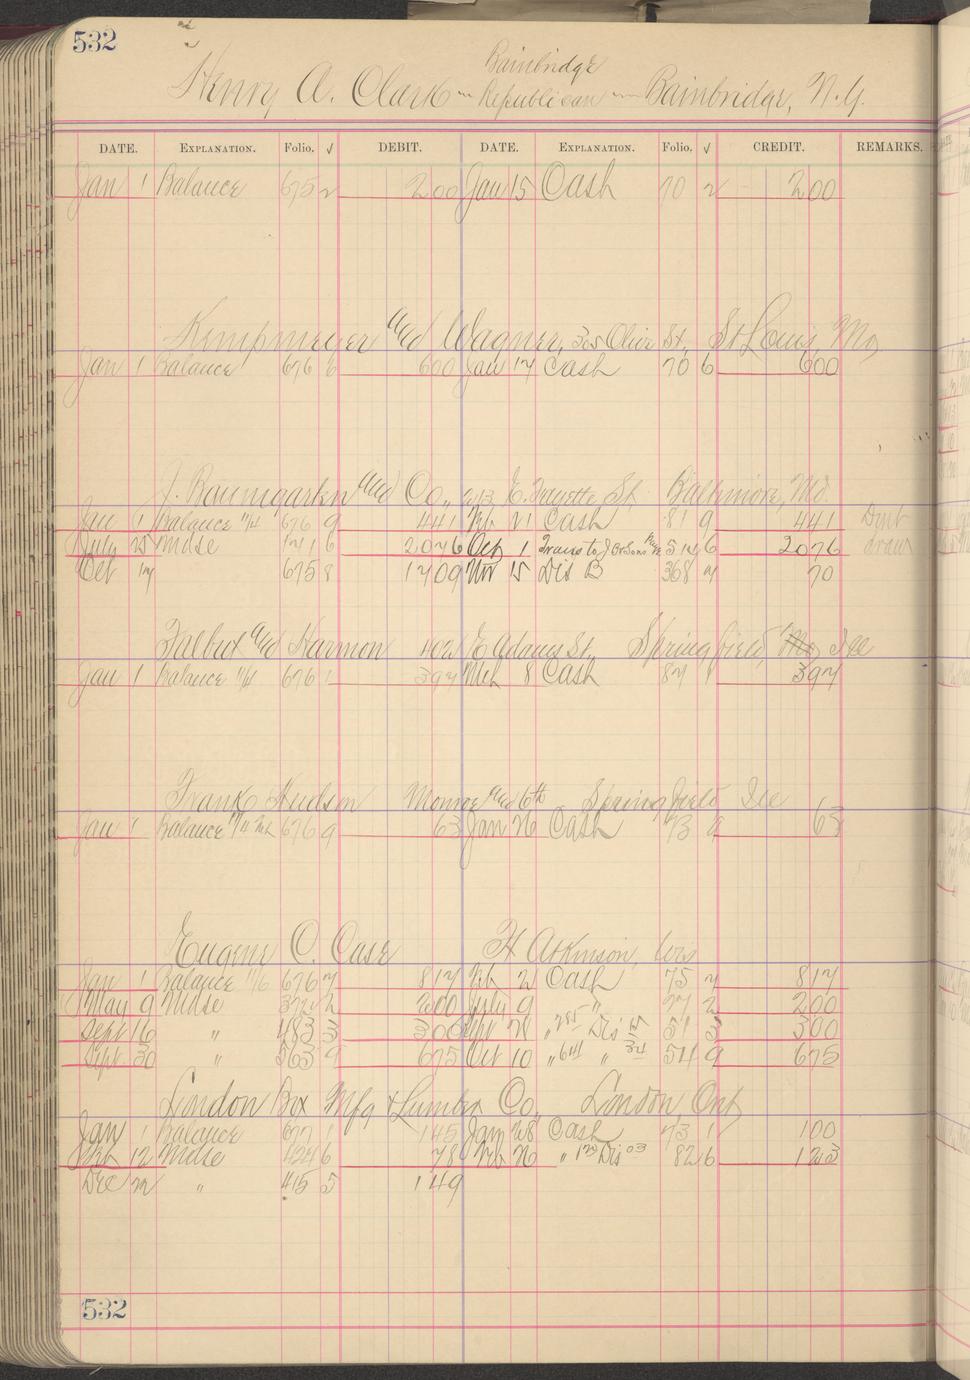 532
Bainbridge
Henry A. Clark " Republican " Bainbridge, N.Y.
DATE. EXPLANATION. Folio. √ DEBIT. DATE. EXPLANATION. Folio. √ CREDIT. REMARKS.
Jan 1 Balance 675 2 200 Jan 15 Cash 70 2 200
Kempmeyer and Wagner, 305 Olive St, St Louis, Mo
Jan 1 Balance 676 6 600 Jan 17 Cash 70 6 600
J. Baumgarten and Co., E. Fayette St, Baltimore, Md.
Jan 1 Balance 11/4 676 9 441 Feb 21 Cash 81 9 441 Dont
July 25 Mdse 141 6 2076 Oct 1 Trans to J B & Sons 514 6 2076 draw
Oct 17 675 8 1709 Nov 15 Dis B 368 7 70
Talbut and Harmon 402 E Adams St. Springfield, Ill
Jan 1 Balance 11/4 676 1 397 Mch 8 Cash 87 1 397
Frank Hudson Monroe and 6th Springfield Ill
Jan 1 Balance 676 9 63 Jan 26 Cash 73 9 63
Eugene C. Case F Atkinson, Wis
Jan 1 Balance 11/6 676 7 817 Feb 2 Cash 75 7 817
May 9 Mdse 372 2 200 July 9 " 77 2 200
Sept 16 " 483 3 300 Sept 28 " 285 Dis 15 51 3 300
Sept 30 " 563 9 675 Oct 10 " 641 " 34 54 9 675
London Box Mfg & Lumber Co, London, Ont
Jan 1 Balance 677 1 145 Jan 28 Cash 73 1 100
Feb 12 Mdse 424 6 78 Feb 26 " 120 Dis 03 82 6 123
Dec " 415 5 149
532